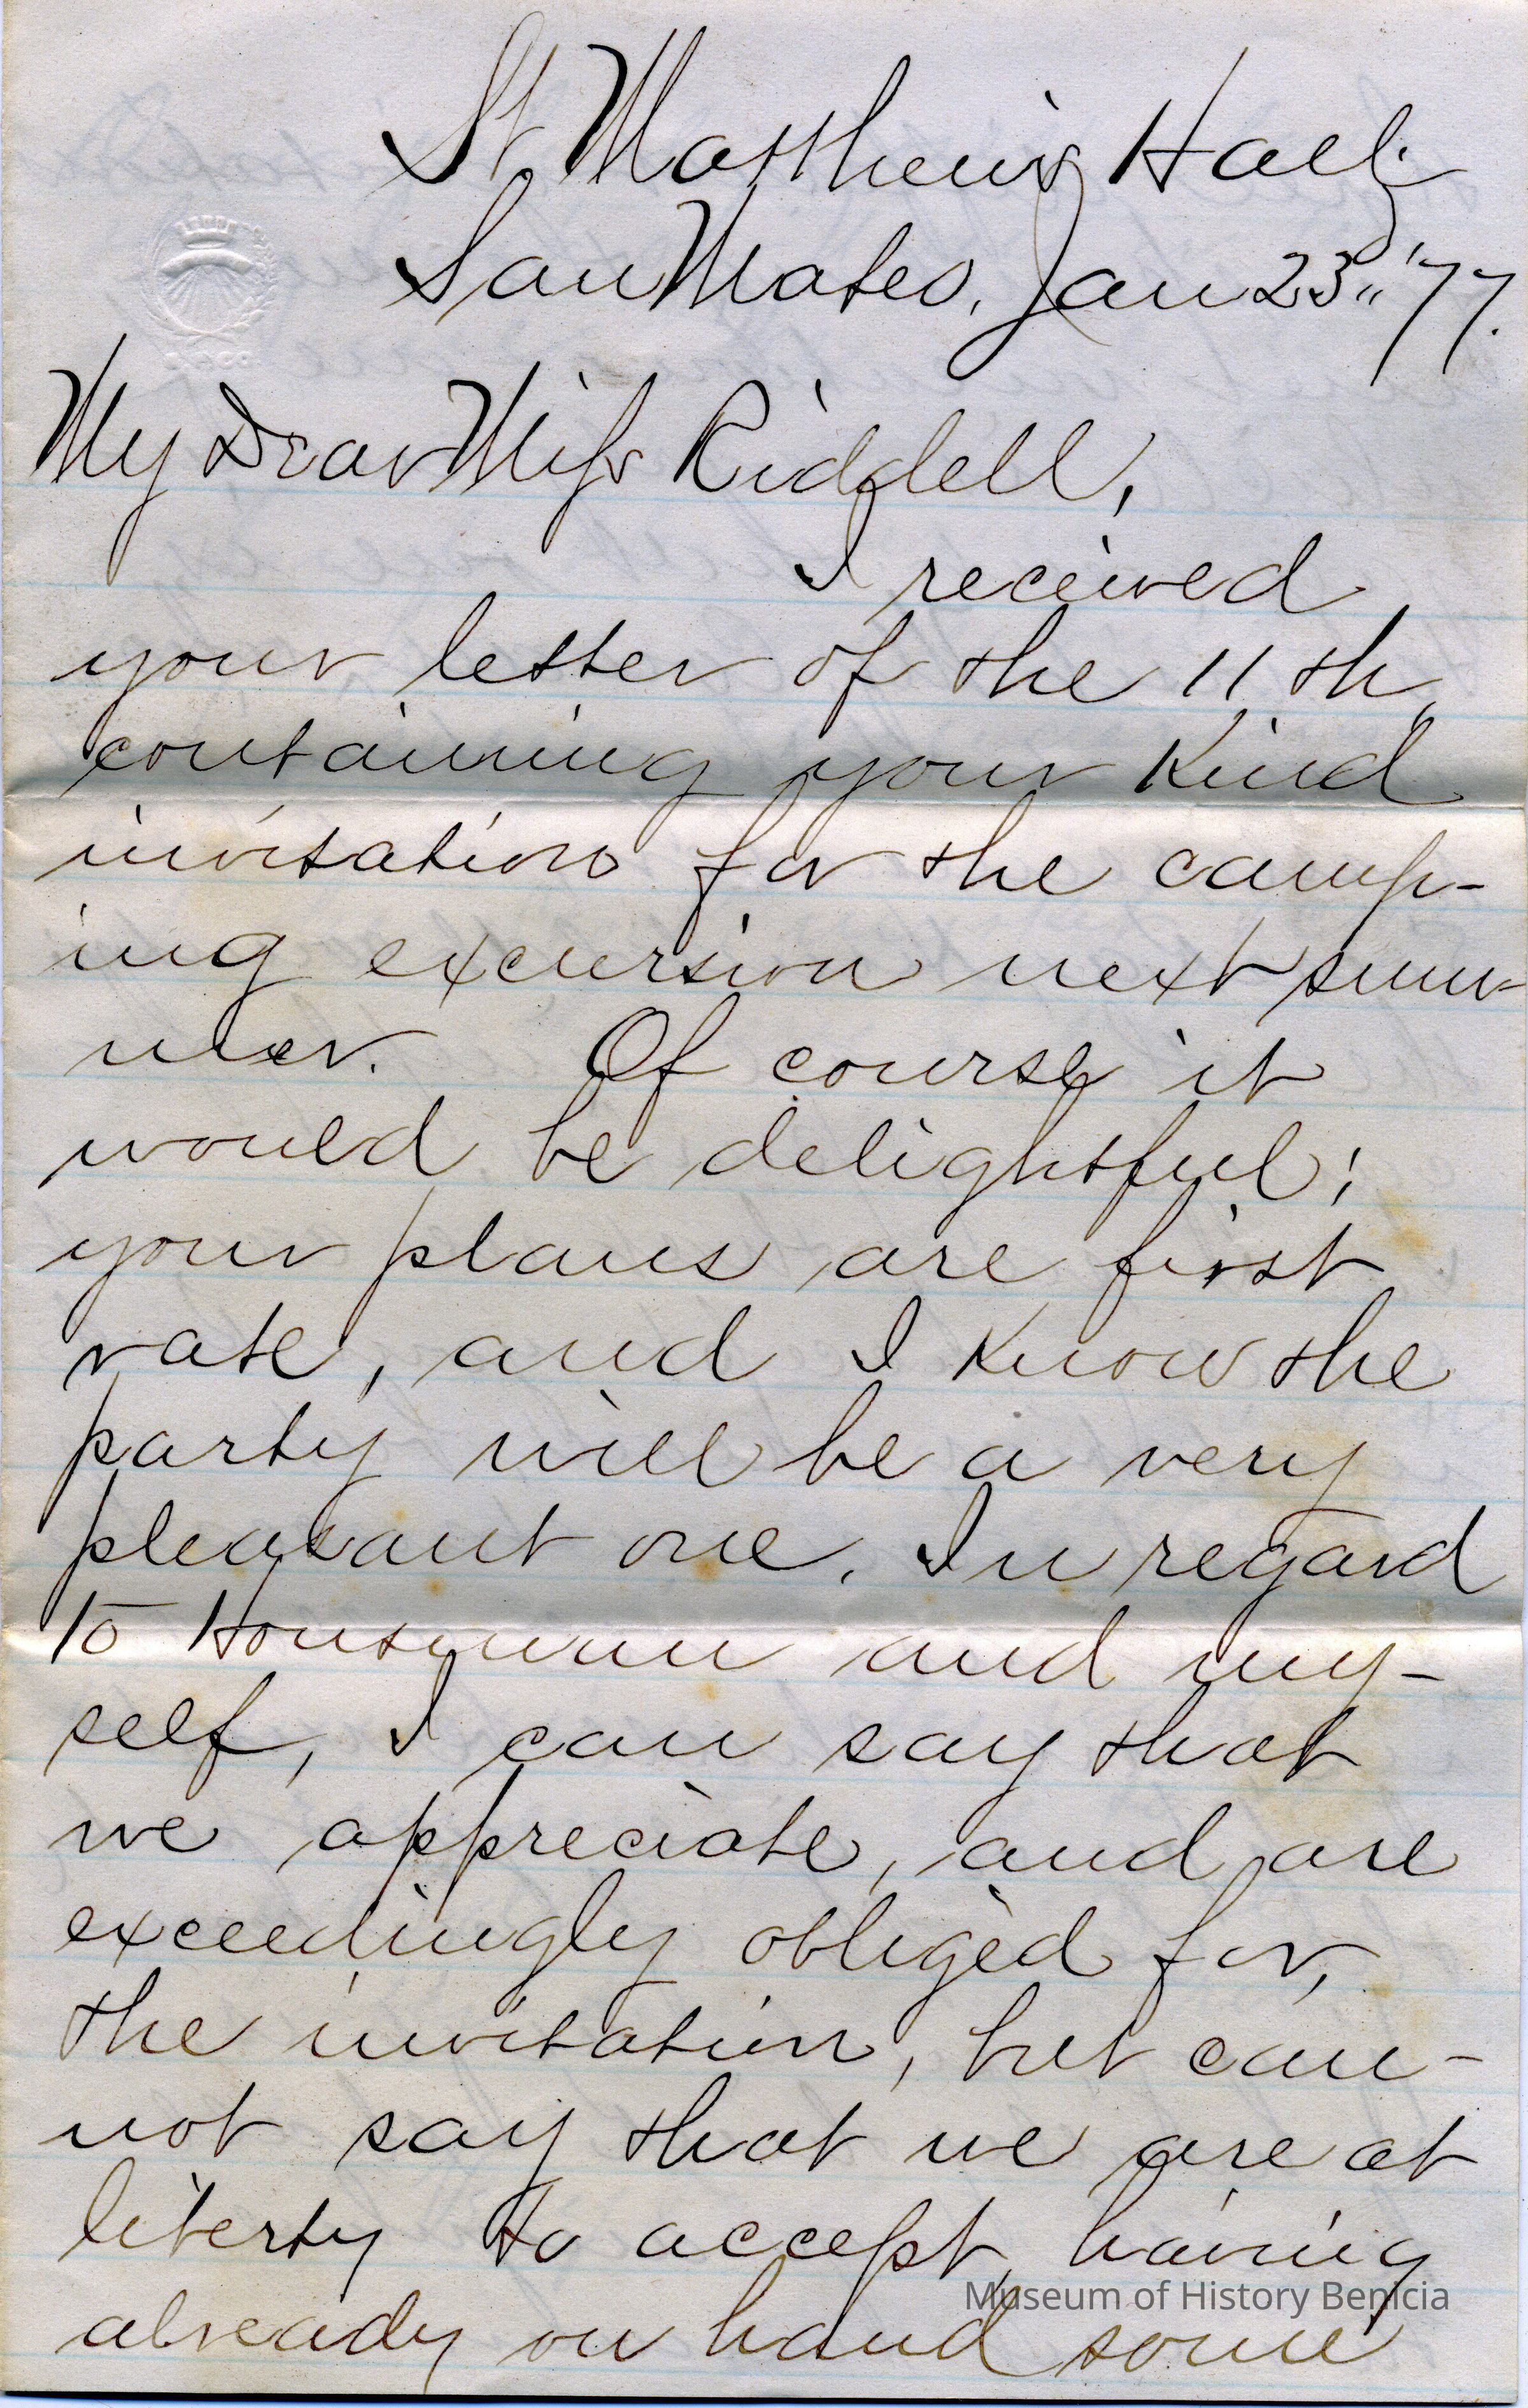 St. Matthew's Hall,
San Mateo, Jan 23" '77.
My Dear Miss Riddell,
I received
your letter of the 11th,
containing your kind
invitation for the camp-
ing excursion next sum-
mer. Of course it
would be delightful;
your plans are first
rate, and I know the
party will be a very
pleasant one. In regard
to Housman and my-
self, I can say that
we appreciate, and are
exceedingly obliged for,
the invitation, but can-
not say that we are at
liberty to accept, having
already on hand some
Museum of History Benicia